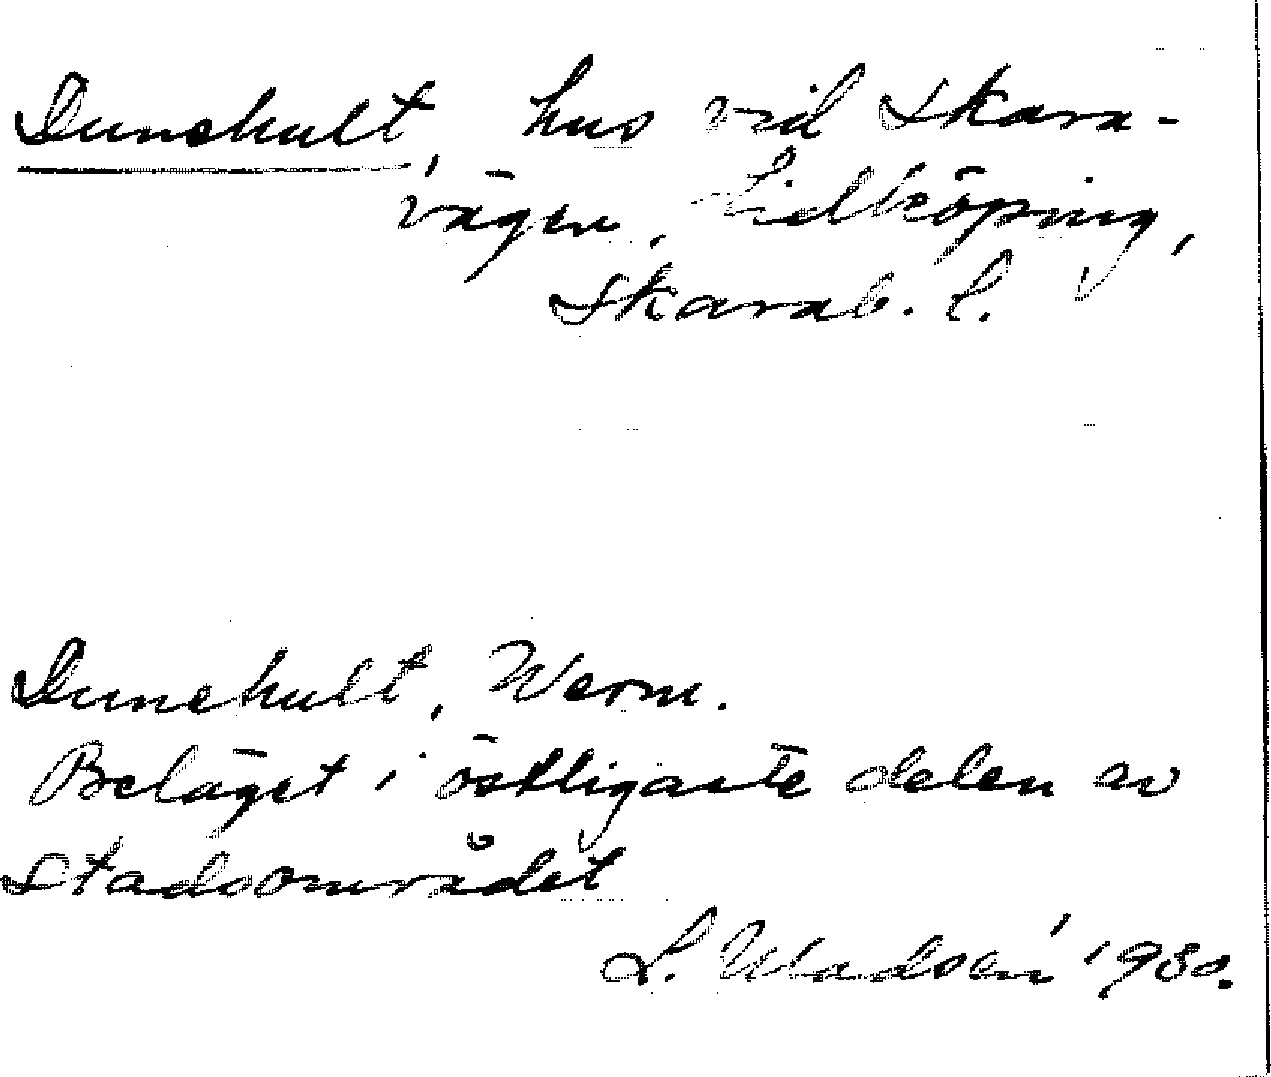 Dunehult, hus vid Skara-
vägen, Lidköping,
Skarab. l.
Dunehult, Werm.
Beläget i östligaste delen av
Stadsområdet
L. 1980.